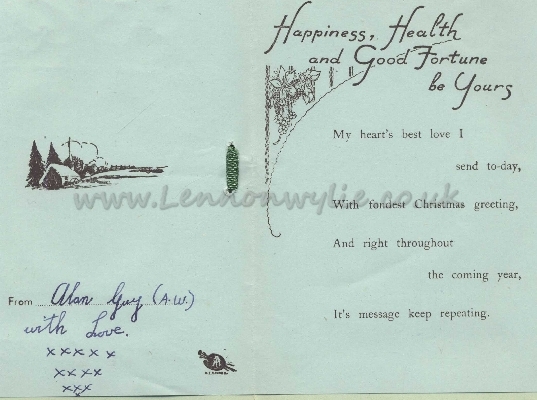 Happiness, Health
and Good Fortune
be Yours
My heart's best love I
send to-day,
With fondest Christmas greeting,
And right throughout
the coming year,
It's message keep repeating.
From Alan Guy (A.W.)
with Love.
xxxxx
xxxx
xxx
www.Lennonwylie.co.uk